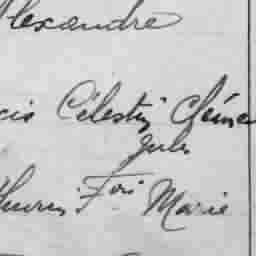 Alexandre
cis Célestin Cléme
Jules
Henri Fois Marie